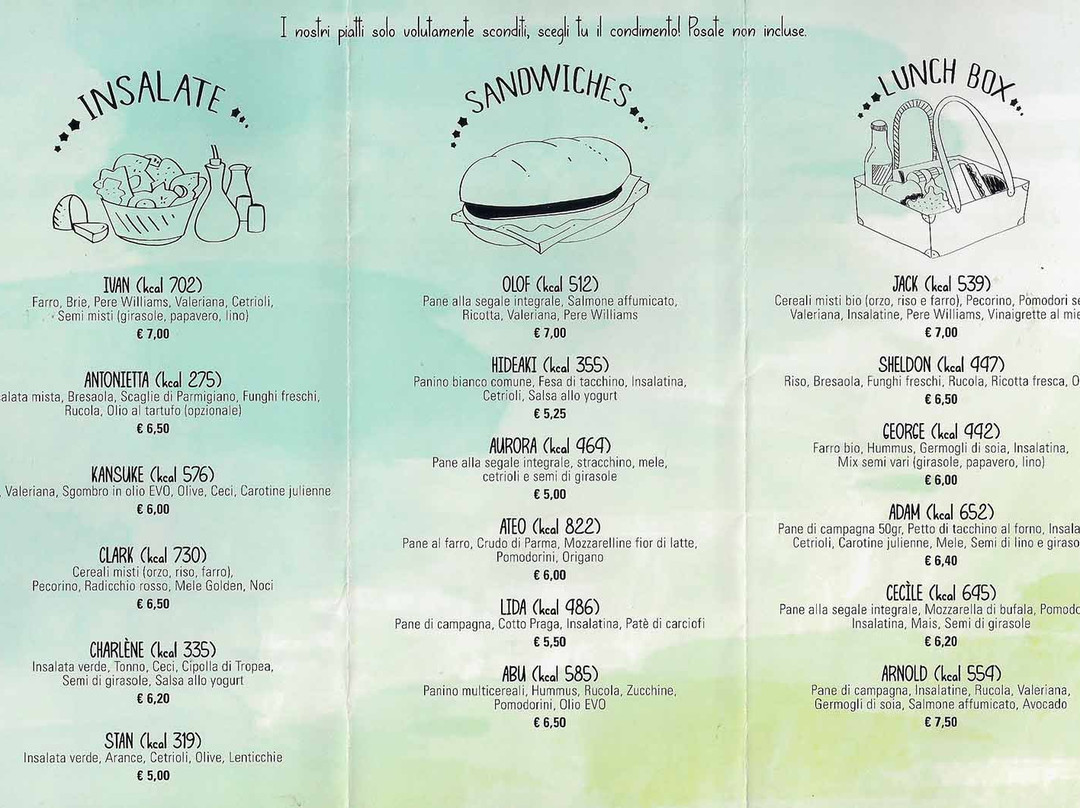 I nostri piatti solo volutamente sconditi, scegli tu il condimento! Posate non incluse.
INSALATE
IVAN (kcal 702)
Farro, Brie, Pere Williams, Valeriana, Cetrioli,
Semi misti (girasole, papavero, lino)
€ 7,00
ANTONIETTA (kcal 275)
mista, Bresaola, Scaglie di Parmigiano, Funghi freschi,
Rucola, Olio al tartufo (opzionale)
€ 6,50
KANSUKE (kcal 576)
, Valeriana, Sgombro in olio EVO, Olive, Ceci, Carotine julienne
€ 6,00
CLARK (kcal 730)
Cereali misti (orzo, riso, farro),
Pecorino, Radicchio rosso, Mele Golden, Noci
€ 6,50
CHARLÈNE (kcal 335)
Insalata verde, Tonno, Ceci, Cipolla di Tropea,
Semi di girasole, Salsa allo yogurt
€ 6,20
STAN (kcal 319)
Insalata verde, Arance, Cetrioli, Olive, Lenticchie
€ 5,00
SANDWICHES
OLOF (kcal 512)
Pane alla segale integrale, Salmone affumicato,
Ricotta, Valeriana, Pere Williams
€ 7,00
HIDEAKI (kcal 355)
Panino bianco comune, Fesa di tacchino, Insalatina,
Cetrioli, Salsa allo yogurt
€ 5,25
AURORA (kcal 464)
Pane alla segale integrale, stracchino, mele,
cetrioli e semi di girasole
€ 5,00
ATEO (kcal 822)
Pane al farro, Crudo di Parma, Mozzarelline fior di latte,
Pomodorini, Origano
€ 6,00
LIDA (kcal 486)
Pane di campagna, Cotto Praga, Insalatina, Patè di carciofi
€ 5,50
ABU (kcal 585)
Panino multicereali, Hummus, Rucola, Zucchine,
Pomodorini, Olio EVO
€ 6,50
LUNCH BOX
JACK (kcal 539)
Cereali misti bio (orzo, riso e farro), Pecorino, Pomodori
Valeriana, Insalatine, Pere Williams, Vinaigrette al
€ 7,00
SHELDON (kcal 447)
Riso, Bresaola, Funghi freschi, Rucola, Ricotta fresca,
€ 6,50
GEORGE (kcal 442)
Farro bio, Hummus, Germogli di soia, Insalatina,
Mix semi vari (girasole, papavero, lino)
€ 6,00
ADAM (kcal 652)
Pane di campagna 50gr, Petto di tacchino al forno,
Cetrioli, Carotine julienne, Mele, Semi di lino e
€ 6,40
CECÌLE (kcal 645)
Pane alla segale integrale, Mozzarella di bufala,
Insalatina, Mais, Semi di girasole
€ 6,20
ARNOLD (kcal 554)
Pane di campagna, Insalatine, Rucola, Valeriana,
Germogli di soia, Salmone affumicato, Avocado
€ 7,50